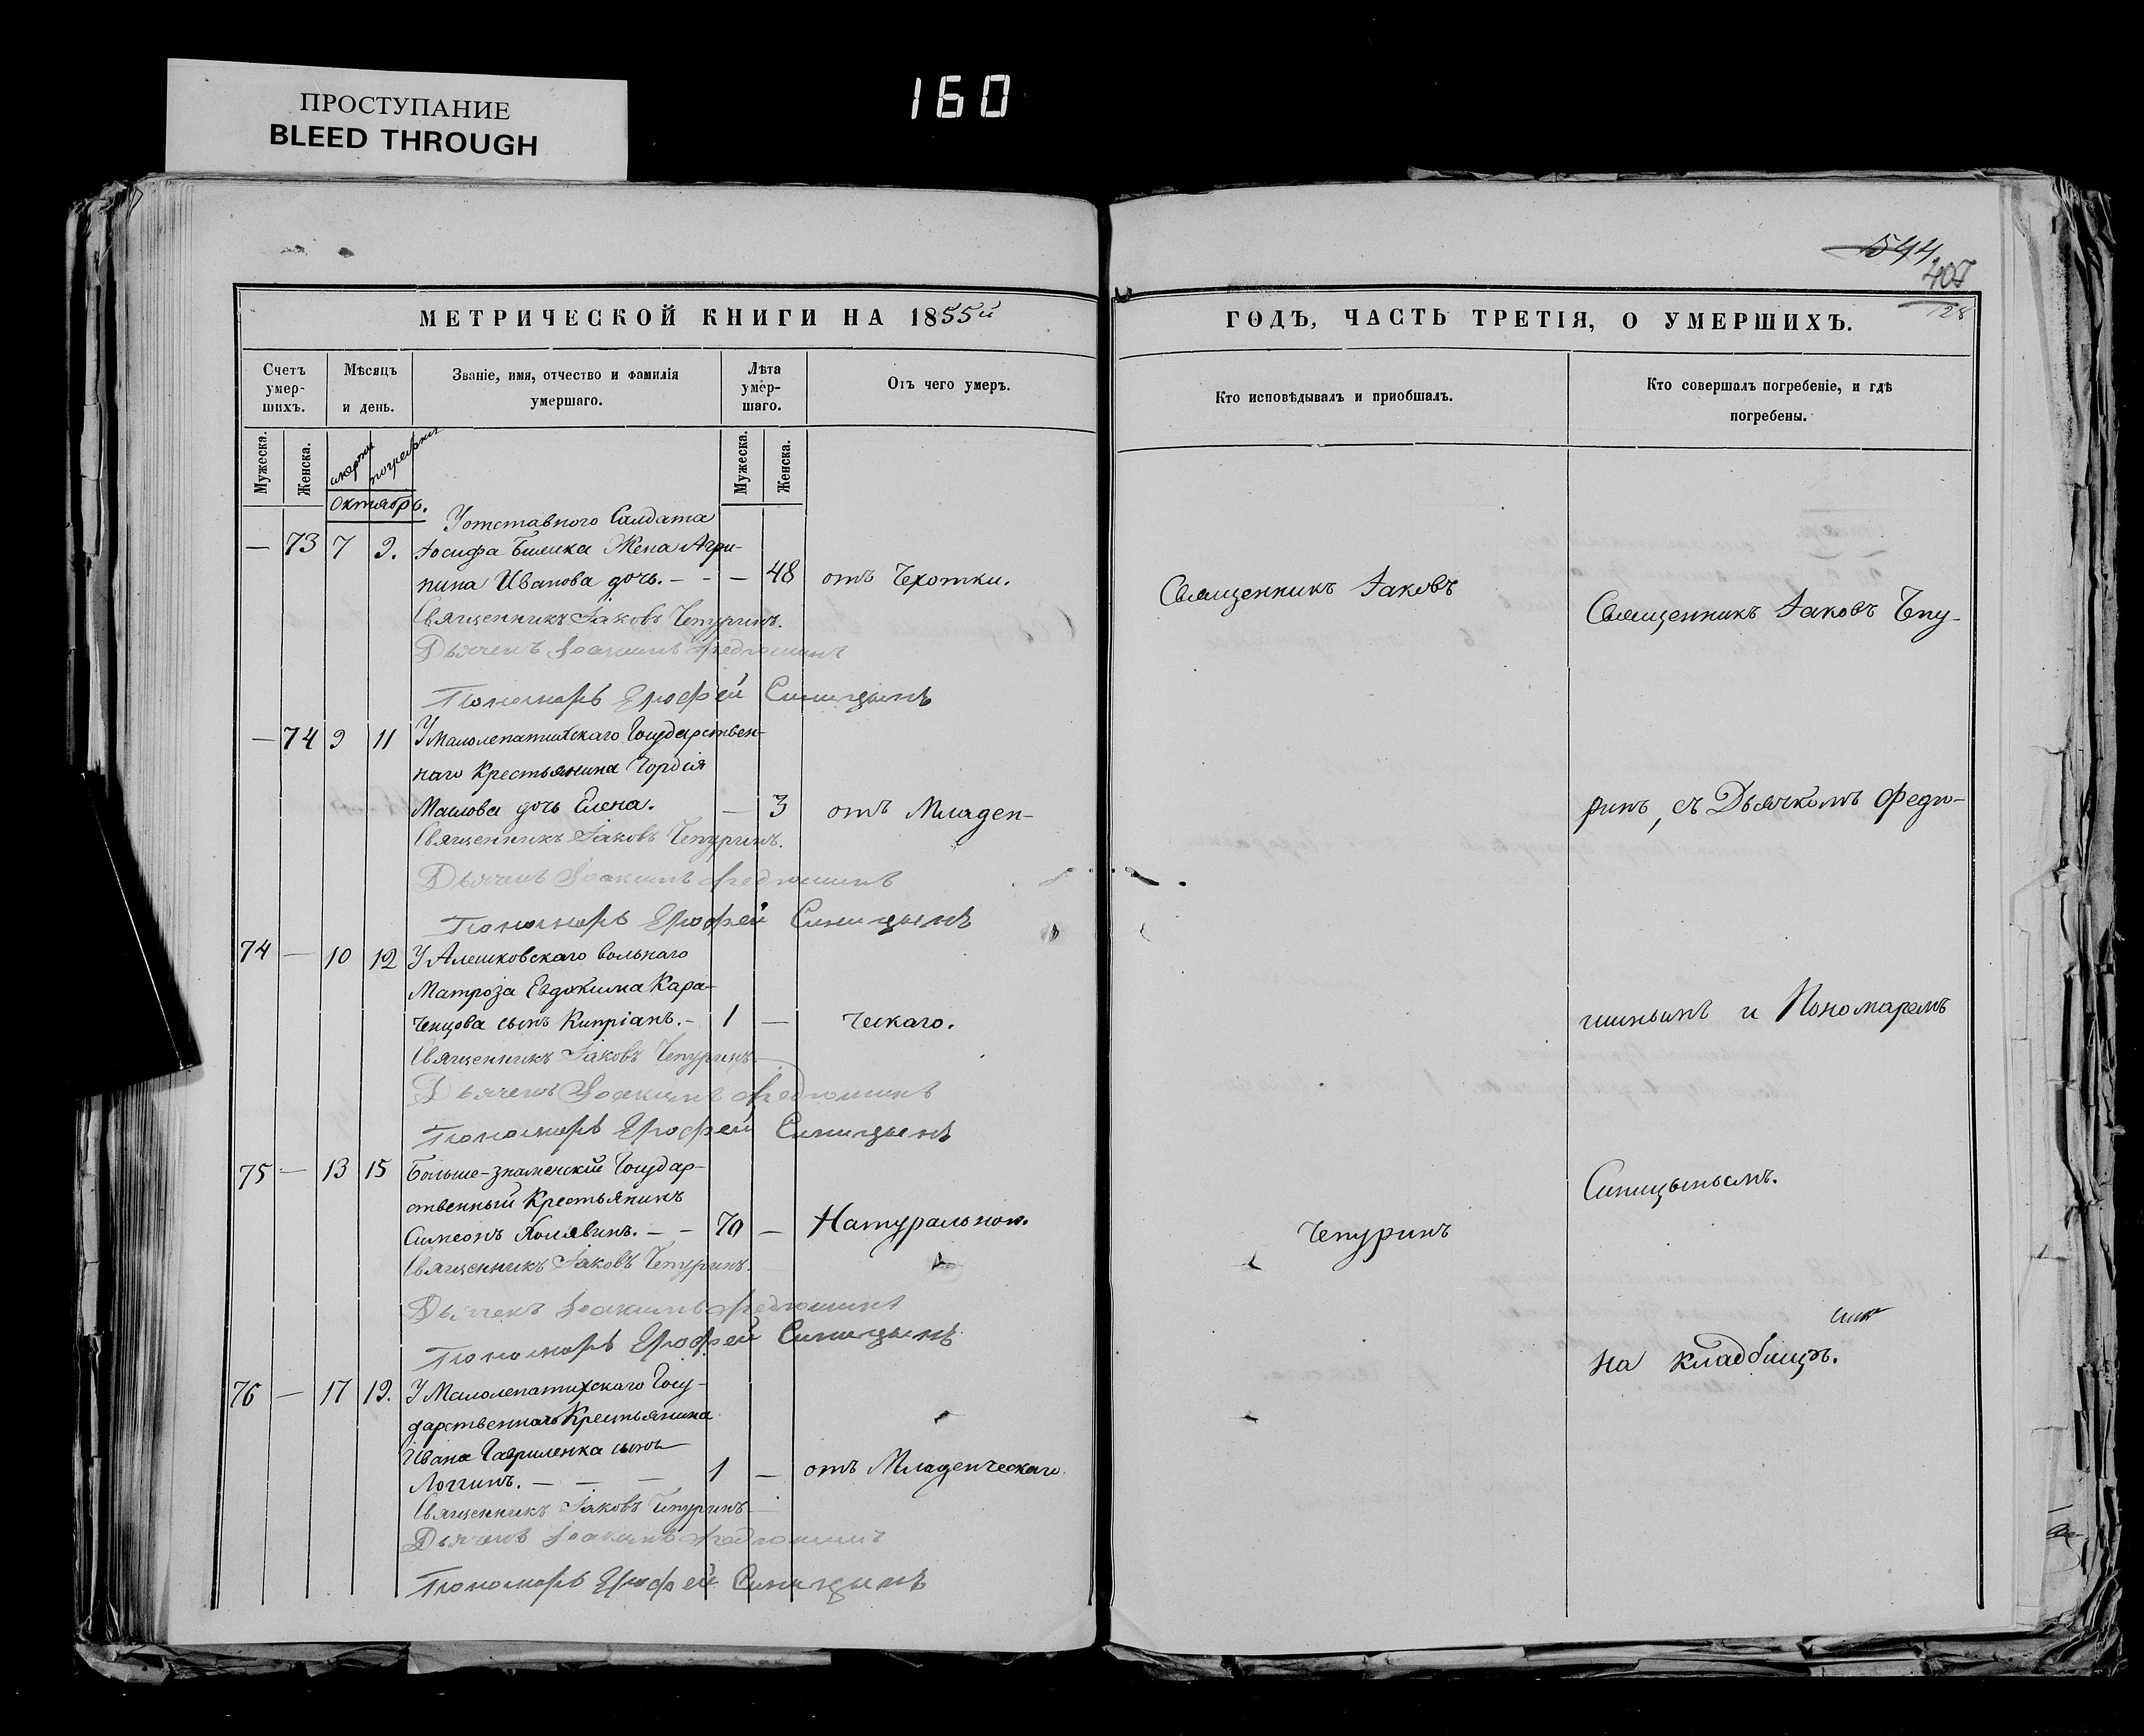 ПРОСТУПАНИЕ
BLEED THROUGH
160
544
407
128
МЕТРИЧЕСКОЙ КНИГИ НА 1855й
ГОДЪ, ЧАСТЬ ТРЕТІЯ, О УМЕРШИХЪ.
Счетъ умер-шихъ.
Мѣсяцъ и день.
Званіе, имя, отчество и фамилія умершаго.
Лѣта умер-шаго.
Отъ чего умеръ.
Кто исповѣдывалъ и приобщалъ.
Кто совершалъ погребеніе, и гдѣ погребены.
Мужеска.
Женска.
смерти
погребенія
Мужеска.
Женска.
Октябрь.
У отставного Салдата
— 73 7 9. Іосифа Билика Жена Агри-
пина Иванова дочь. — 48 отъ Чехотки.
Священникъ Іаковъ Чепуринъ.
Дьячекъ Іоакимъ Федюшинъ
Пономарь Ерофей Синицынъ
— 74 9 11 У Малолепатихскаго Государствен-
наго Крестьянина Гордія
Маслова дочь Елена. — 3 отъ Младен-
Священникъ Іаковъ Чепуринъ.
Дьячекъ Іоакимъ Федюшинъ
Пономарь Ерофей Синицынъ
74 — 10 12 У Алешковскаго вольнаго
Матроза Евдокима Кара-
ченцова сынъ Кипріанъ. 1 — ческаго.
Священникъ Іаковъ Чепуринъ
Дьячекъ Іоакимъ Федюшинъ
Пономарь Ерофей Синицынъ
75 — 13 15 Больше-знаменскій Государ-
ственный Крестьянинъ
Симеонъ Холявинъ. 70 — Натуральною.
Священникъ Іаковъ Чепуринъ.
Дьячекъ Іоакимъ Федюшинъ
Пономарь Ерофей Синицынъ
76 — 17 19. У Малолепатихскаго Госу-
дарственнаго Крестьянина
Ивана Гавриленка сынъ
Логгинъ. 1 — отъ Младенческаго
Священникъ Іаковъ Чепуринъ
Дьячекъ Іоакимъ Федюшинъ
Пономарь Ерофей Синицынъ
Священникъ Іаковъ
Чепуринъ
Священникъ Іаковъ Чпу-
ринъ, съ Дьячкомъ Федю-
шинымъ и Пономаремъ
Синицынымъ.
на кладбищѣ.